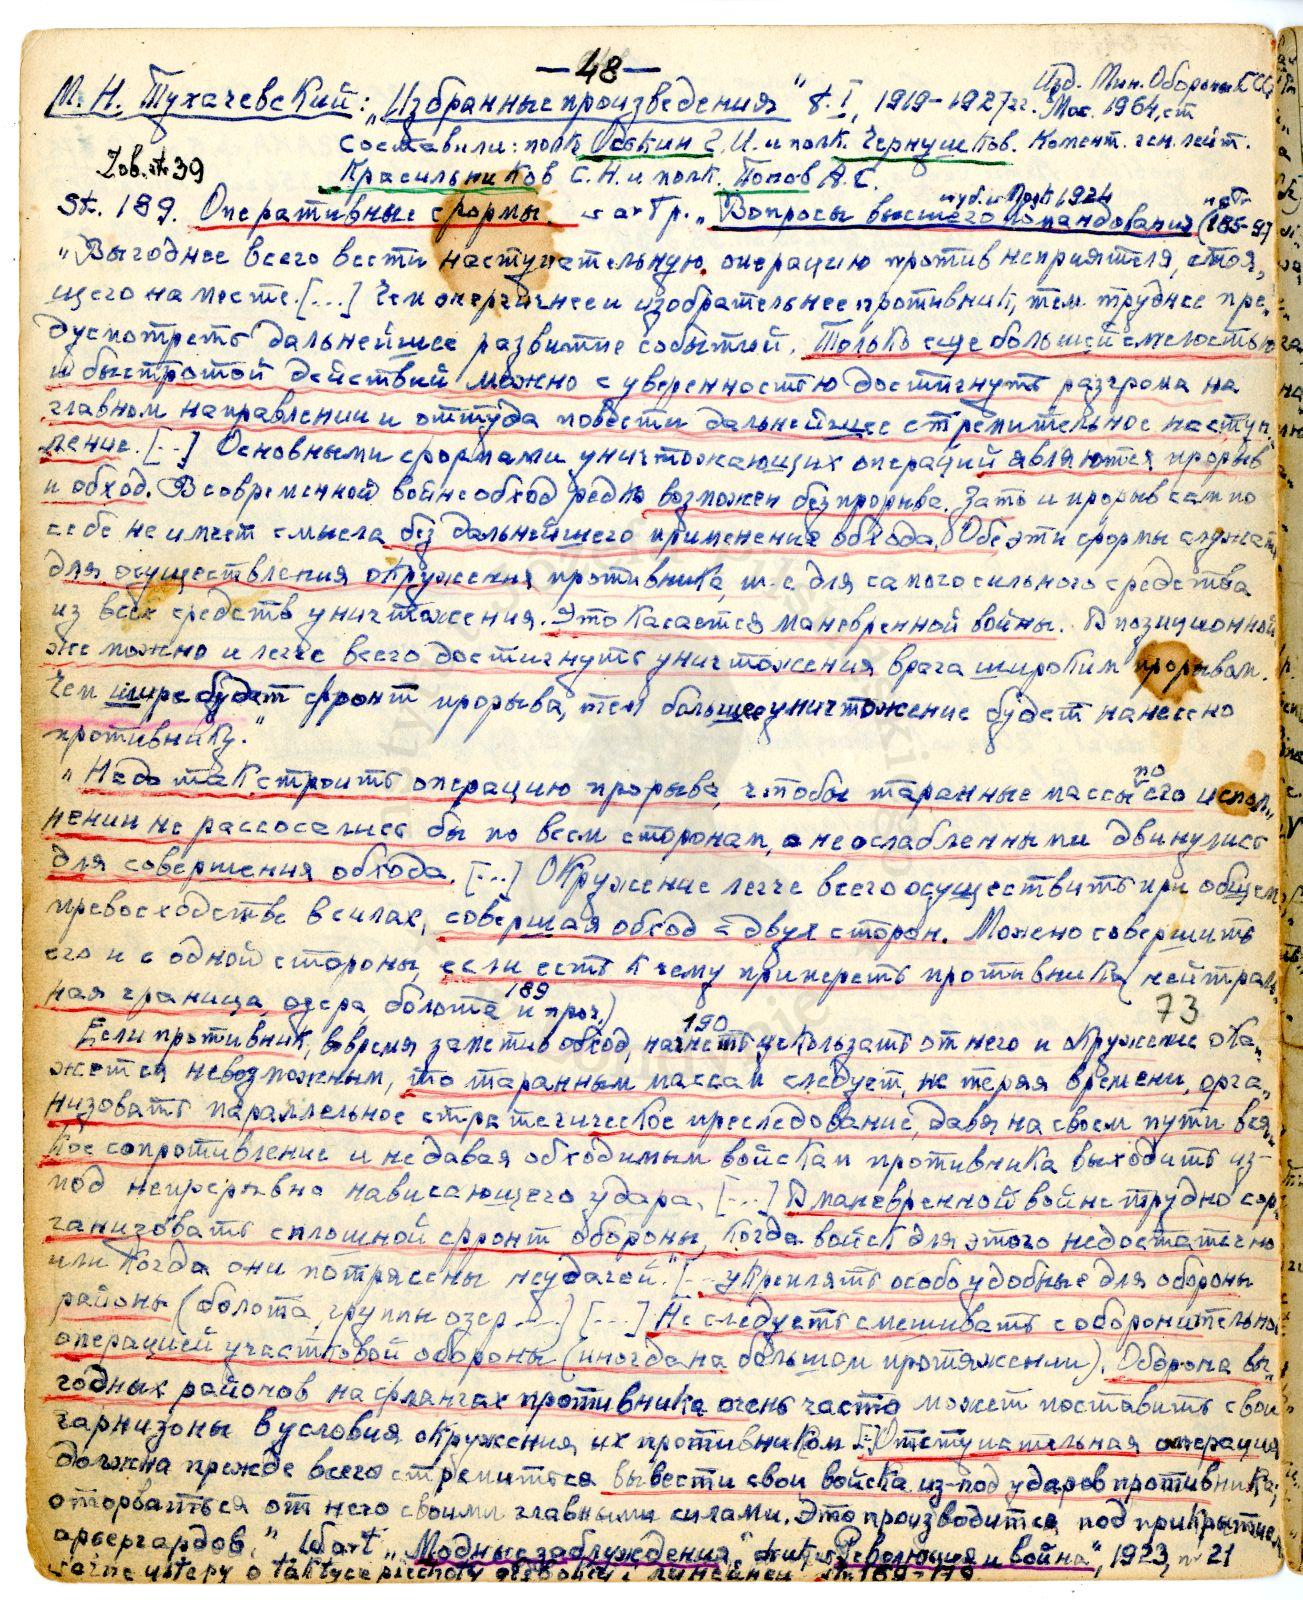 — 48 —
М. Н. Тухачевский: „Избранные произведения" t. I, 1919–1927 гг. Изд. Мин. Обороны СССР, Мос. 1964, st
составили: полк. Оськин Г. И. и полк. Чернушков. Комент. ген. лейт.
Zob. str 39
Красильников С. Н. и полк. Попов А. С.
St. 189. Оперативные формы. „Вопросы высшего командования" 1924 (185-97
„Выгоднее всего вести наступательную операцию против неприятеля, стоя„
щего на месте. [...] Чем энергичнее и изобретательнее противник, тем труднее пре„
дусмотреть дальнейшее развитие событий. Только еще большей смелостью
и быстротой действий можно с уверенностью достигнуть разгрома на
главном направлении и оттуда повести дальнейшее стремительное наступ„
ление. [...] Основными формами уничтожающих операций являются прорыв
и обход. В современной войне обход редко возможен без прорыва. Зато и прорыв сам по
себе не имеет смысла без дальнейшего применения обхода. Обе эти формы служат
для осуществления окружения противника, т.е. для самого сильного средства
из всех средств уничтожения. Это касается маневренной войны. В позиционной
же можно и легче всего достигнуть уничтожения врага широким прорывом.
Чем шире будет фронт прорыва, тем большее уничтожение будет нанесено
противнику."
„Надо так строить операцию прорыва, чтобы таранные массы по его испол„
нении не рассосались бы по всем сторонам, а неослабленными двинулись
для совершения обхода. [...] Окружение легче всего осуществить при общем
превосходстве в силах, совершая обход с двух сторон. Можно совершить
его и с одной стороны, если есть к чему припереть противника (нейтраль„
ная граница, озера, болота и проч.) 189 73
Если противник, вовремя заметив обход, начнет 190 ускользать от него и окружение ока„
жется невозможным, то таранным массам следует, не теряя времени, орга„
низовать параллельное стратегическое преследование, давя на своем пути вся„
кое сопротивление и не давая обходимым войскам противника выходить из-
под непрерывно нависающего удара. [...] В маневренной войне трудно сор„
ганизовать сплошной фронт обороны, когда войск для этого недостаточно
или когда они потрясены неудачей." [... укреплять особо удобные для обороны
районы (болота, группы озер ...) [...] Не следует смешивать с оборонительной
операцией участковой обороны (иногда на большом протяжении). Оборона вы„
годных районов на флангах противника очень часто может поставить свои
гарнизоны в условия окружения их противником. [.] Отступательная операция
должна прежде всего стремиться вывести свои войска из-под ударов противника,
оторваться от него своими главными силами. Это производится под прикрытием
арьергардов." W art. „Модные заблуждения", „Революция и война", 1923, nr 21
o taktyce piechoty str. 169-170